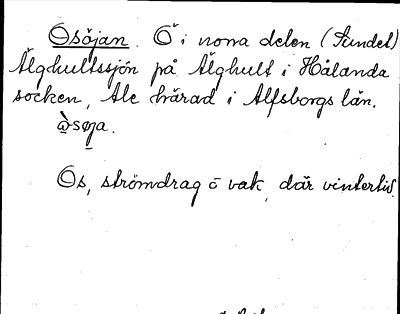 Osöjan. Ö i norra delen (Sundet)
Älghultssjön på Älghult i Hålanda
socken, Ale härad i Älfsborgs län.
ò̱søja.
Os, strömdrag o vak, där vintertid